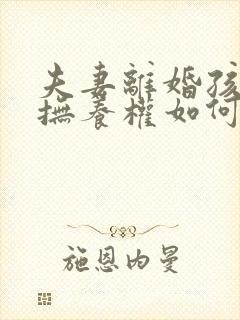 夫妻離婚孩
撫養權如何
施恩内曼